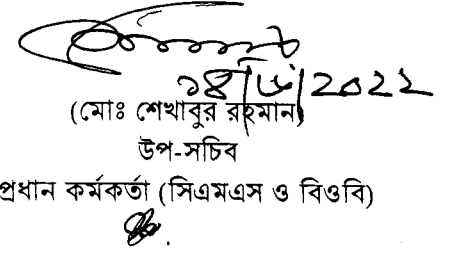 ১৪/৬/২০২২
(মোঃ শেখাবুর রহমান)
উপ-সচিব
প্রধান কর্মকর্তা (সিএমএস ও বিওবি)